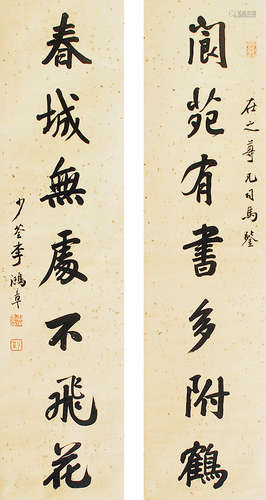 閬苑有書多附鶴
在之尊兄司馬鑒
春城無處不飛花
少荃李鴻章